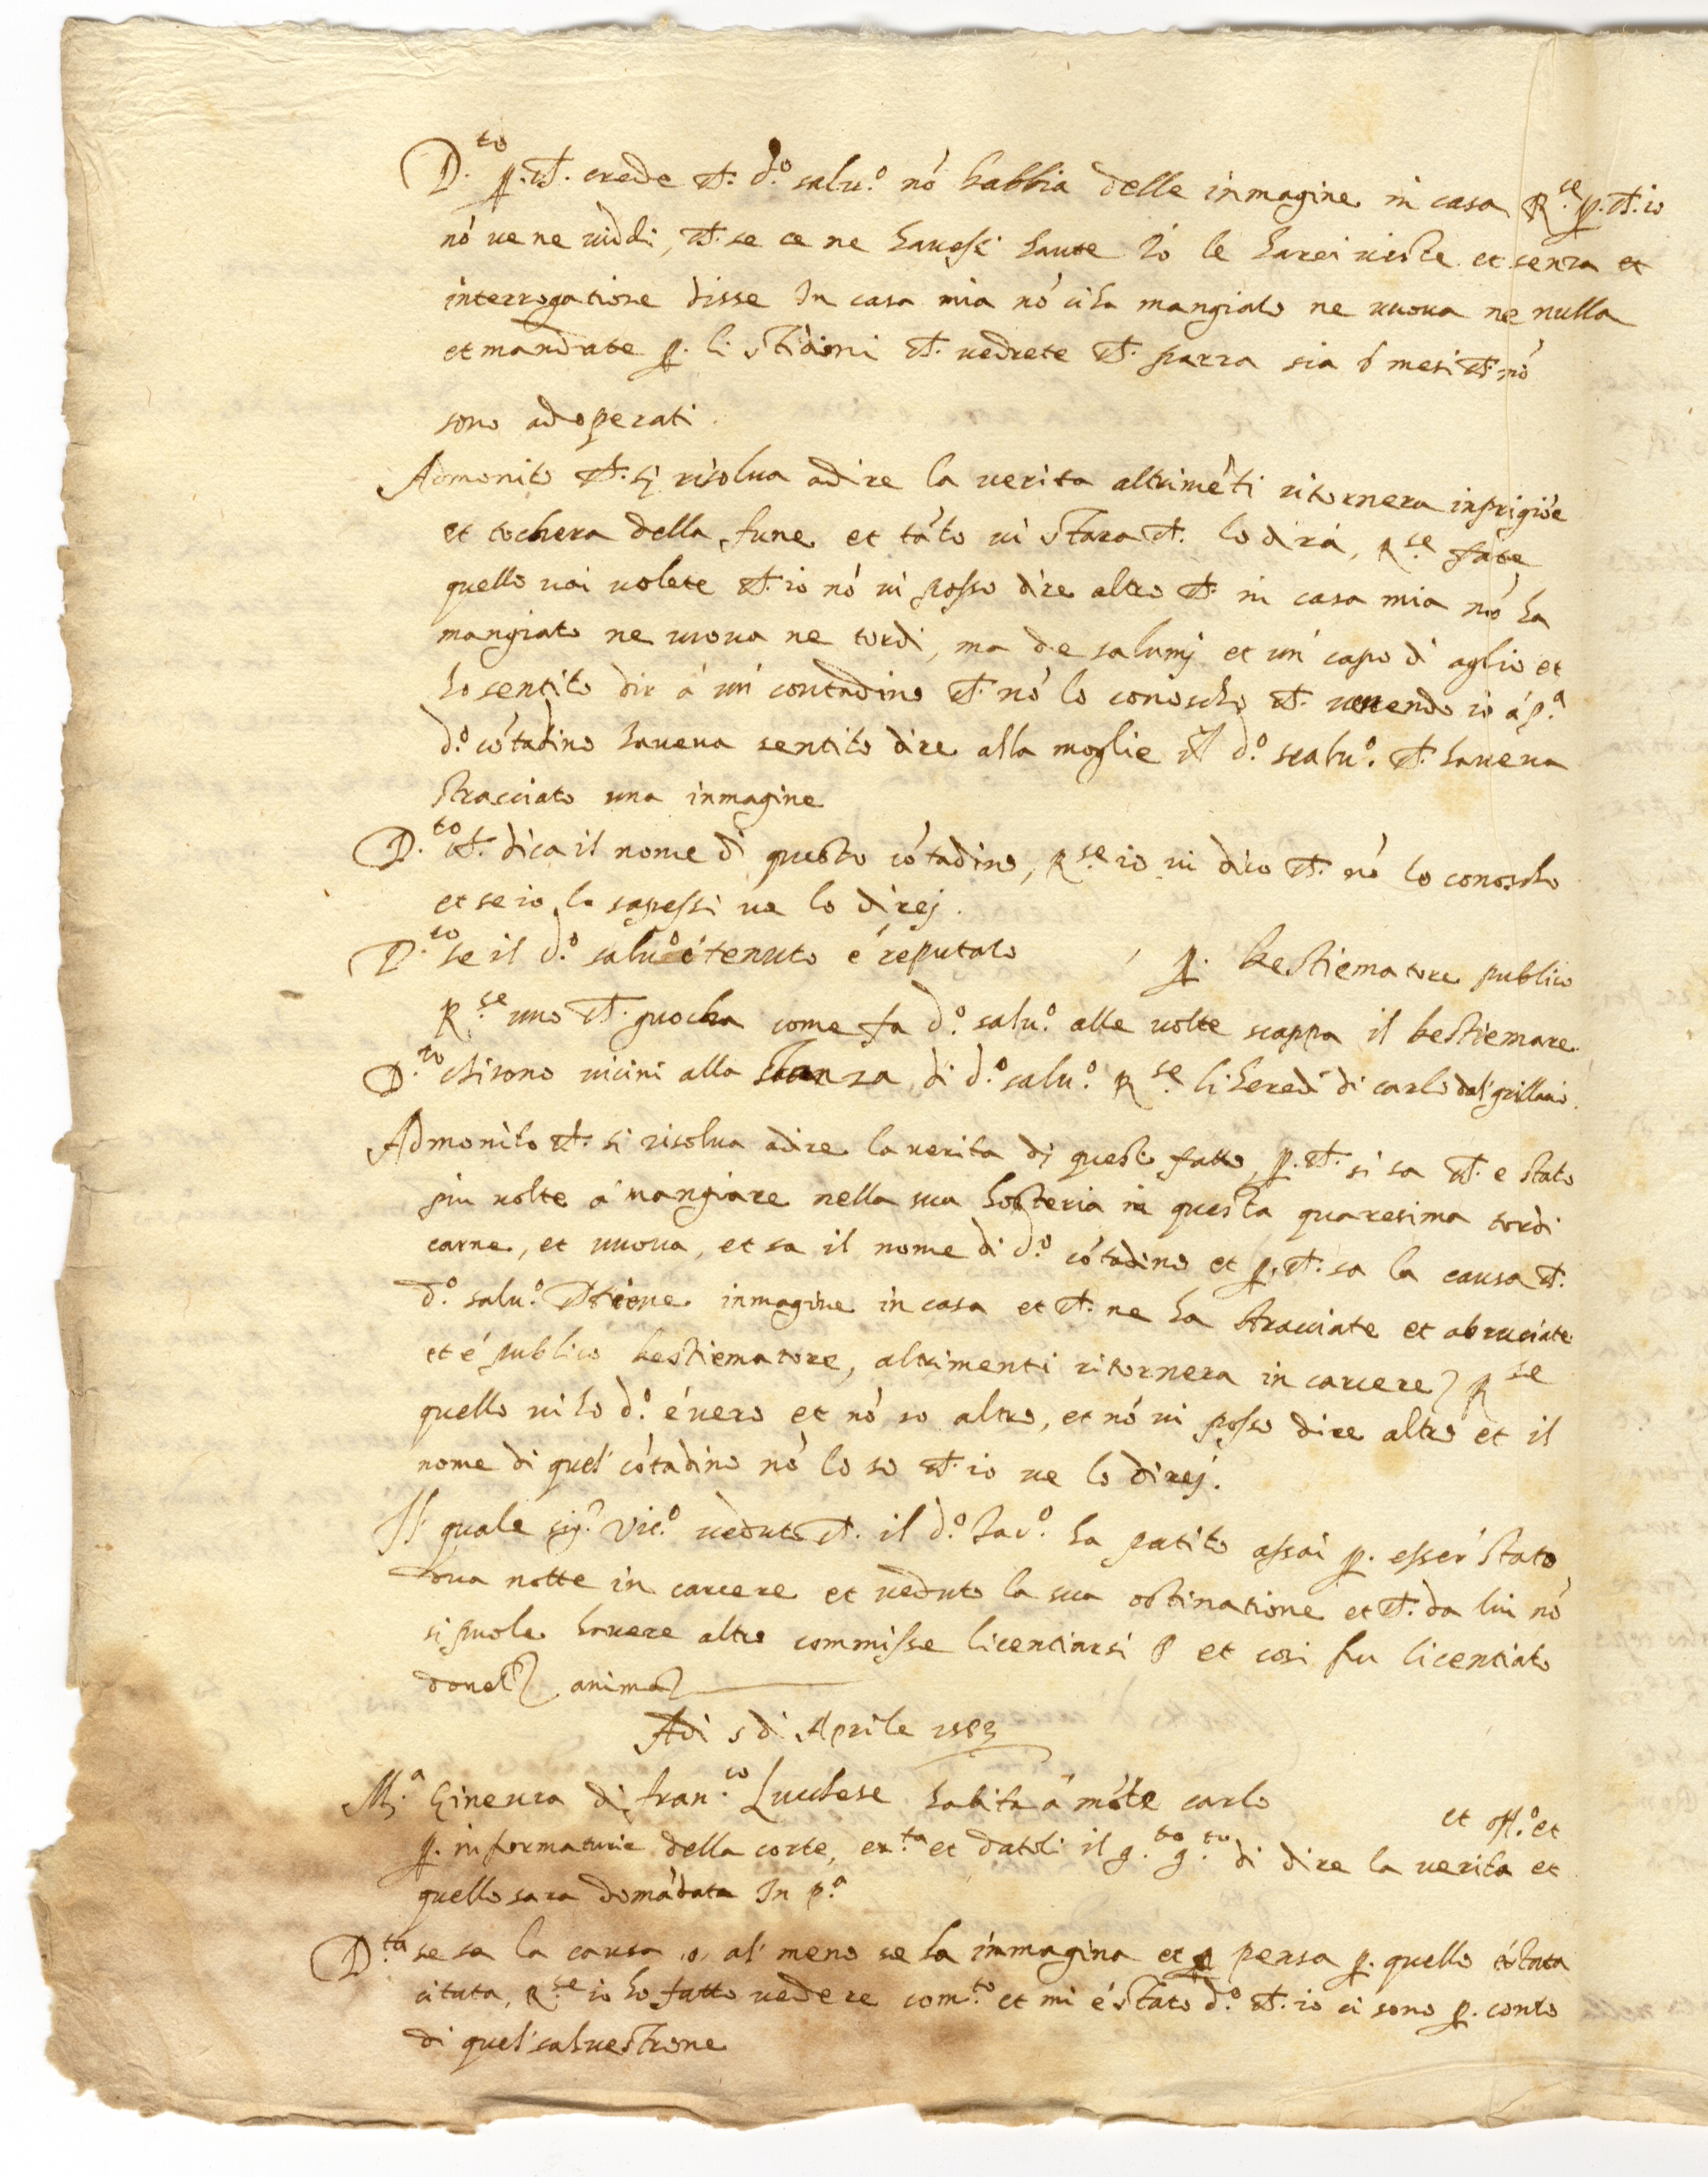 D.to p. ch. crede ch. d.o salu.o nó habbia delle inmagine in casa R.se p. ch. io
nó ue ne uiddi, ch. se ce ne hauessi haute io le harei uiste et senza et
interrogatione disse In casa mia nó ci ha mangiato ne uuoua ne nulla
et mandate p. li stidioni ch. uedrete ch. parra sia 6 mesi ch. nó
sono adoperati.
Admonito ch. si risolua a dire la uerita altriméti ritornera in prigióe
et tochera della fune et táto ui stara ch. lo dirá, R.se fate
quello uoi uolete ch. io nó ui posso dire altro ch. in casa mia nó ha
mangiato ne uuoua ne tordi, ma de salumj et un' capo di aglio et
ho sentito dir á un' contadino ch. nó lo conoscho ch. uenendo io á p.a
d.o cótadino haueua sentito dire alla moglie d.o salu.o ch. haueua
stracciato una inmagine
D.to ch. dica il nome di questo cótadino, R.se io ui dico ch. nó lo conoscho
et se io lo sapessi ue lo direj.
D.to se il d.o salu.o é tenuto e reputato p. bestiematore publico
R.se uno ch. giuocha come fa d.o salu.o alle uolte scappa il bestiemare.
D.to chi sono uicini alla stanza di d.o salu.o R.se li heredi di carlo dal' grillaio.
Admonito ch. si risolua a dire la uerita di questo fatto, p. ch. si sa ch. e stato
piu uolte á mangiare nella sua hosteria in questa quaresima tordi
carne, et uuoua, et sa il nome di d.o cótadino et p. ch. sa la causa ch.
d.o salu.o tiene inmagine in casa et ch. ne ha stracciate et abruciate
et é publico bestiematore, altrimenti ritornera in carcere, R.se
quello ui ho d.o é uero et nó so altro, et nó ui posso dire altro et il
nome di quel' cótadino nó lo so ch. io ue lo direj.
Il quale sig.r Vic.o ueduto ch. il d.o ha patito assai p. esser' stato
una notte in carcere et ueduto la sua ostinatione et ch. da lui nó
si puole hauere altro commisse licentiarsi et cosi fu licentiato
animo
Adi 5 di Aprile 1583
M.a Gineura di fran.co Lucchese habita á móte carlo
p. informatione della corte, et datoli il g.to g.to di dire la uerita et
quello sara domádata In p.a
D.ta se sa la causa o, al' meno se la immagina et pensa p. quello é stata
citata, R.se io ho fatto uedere com.to et mi é stato d.o ch. io ci sono p. conto
di quel' saluestrone